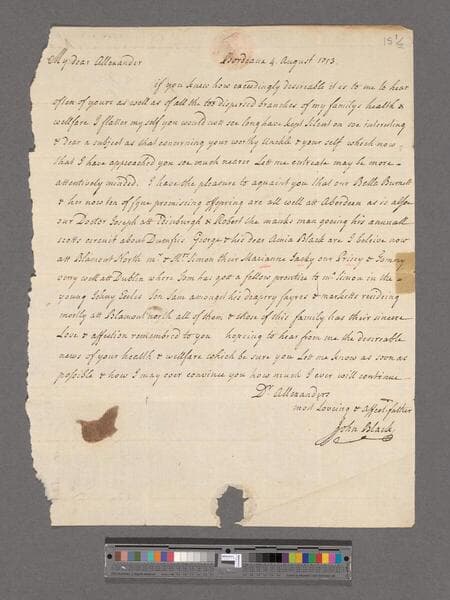 15 1/2
My dear Allexander Bordeaux 4. August 1753.
if you knew how exceedingly desireable it is to me to hear
often of yours as well as of all the too dispersed branches of my familys health &
wellfare I flatter my self you would not soe long have kept silent on soe interesting
& dear a subject as that concerning your worthy Unckle & your self which now
that I have approached you soe much nearer Let me entreate may be more
attentively minded. I have the pleasure to aquaint you that our Belle Burnett
& her now ten of fyne promissing ofspring are all well att Aberdeen as is alsoe
our Doctor Joseph att Edinburgh & Robert the manks man goeing his annuall
scotts circuit about Dumfris George & his dear Amia Black are I believe now
att Blamont North mr & Mrs. Simon their Marianne Jacky our Prissy & Tommy
very well att Dublin where Tom has got a fellow prentice to mr Simon in the
young Johny Eccles Son Sam amongst his drapery fayres & marketts residing
mostly att Blamont north all of them & those of this family has their sincere
Love & affection remembered to you hopeing to hear from me the desireable
news of your health & wellfare which be sure you Let me know as soon as
possible & how I may ever convince you how much I ever will continue
Dr. Allexanders
most Loveing & affect. father
John Black